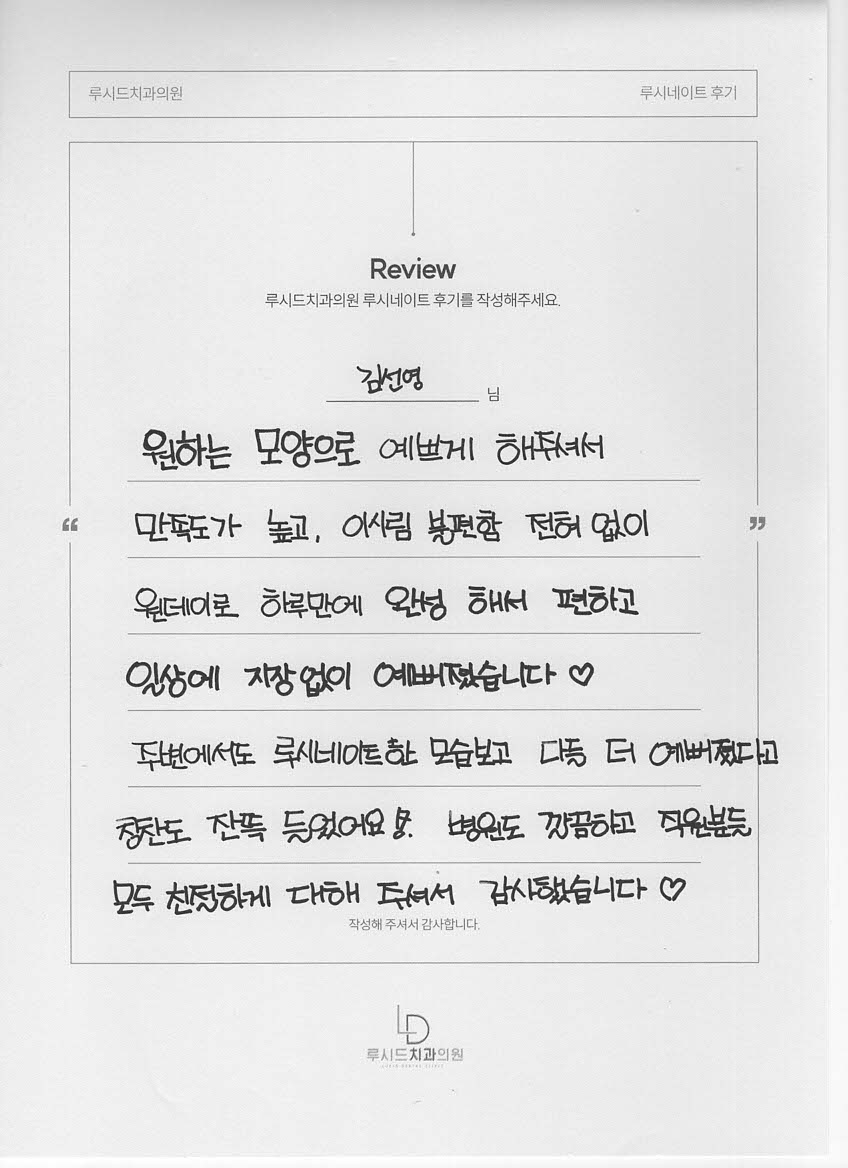 루시드치과의원
루시네이트 후기
Review
루시드치과의원 루시네이트 후기를 작성해주세요.
김선영 님
원하는 모양으로 예쁘게 해주셔서
“ 만족도가 높고, 이시림 불편함 전혀 없이 ”
원데이로 하루만에 완성 해서 편하고
일상에 지장 없이 예뻐졌습니다 ♡
주변에서도 루시네이트한 모습보고 다들 더 예뻐졌다고
칭찬도 잔뜩 들었어요!. 병원도 깔끔하고 직원분들
모두 친절하게 대해 주셔서 감사했습니다 ♡
작성해 주셔서 감사합니다.
LD
루시드치과의원